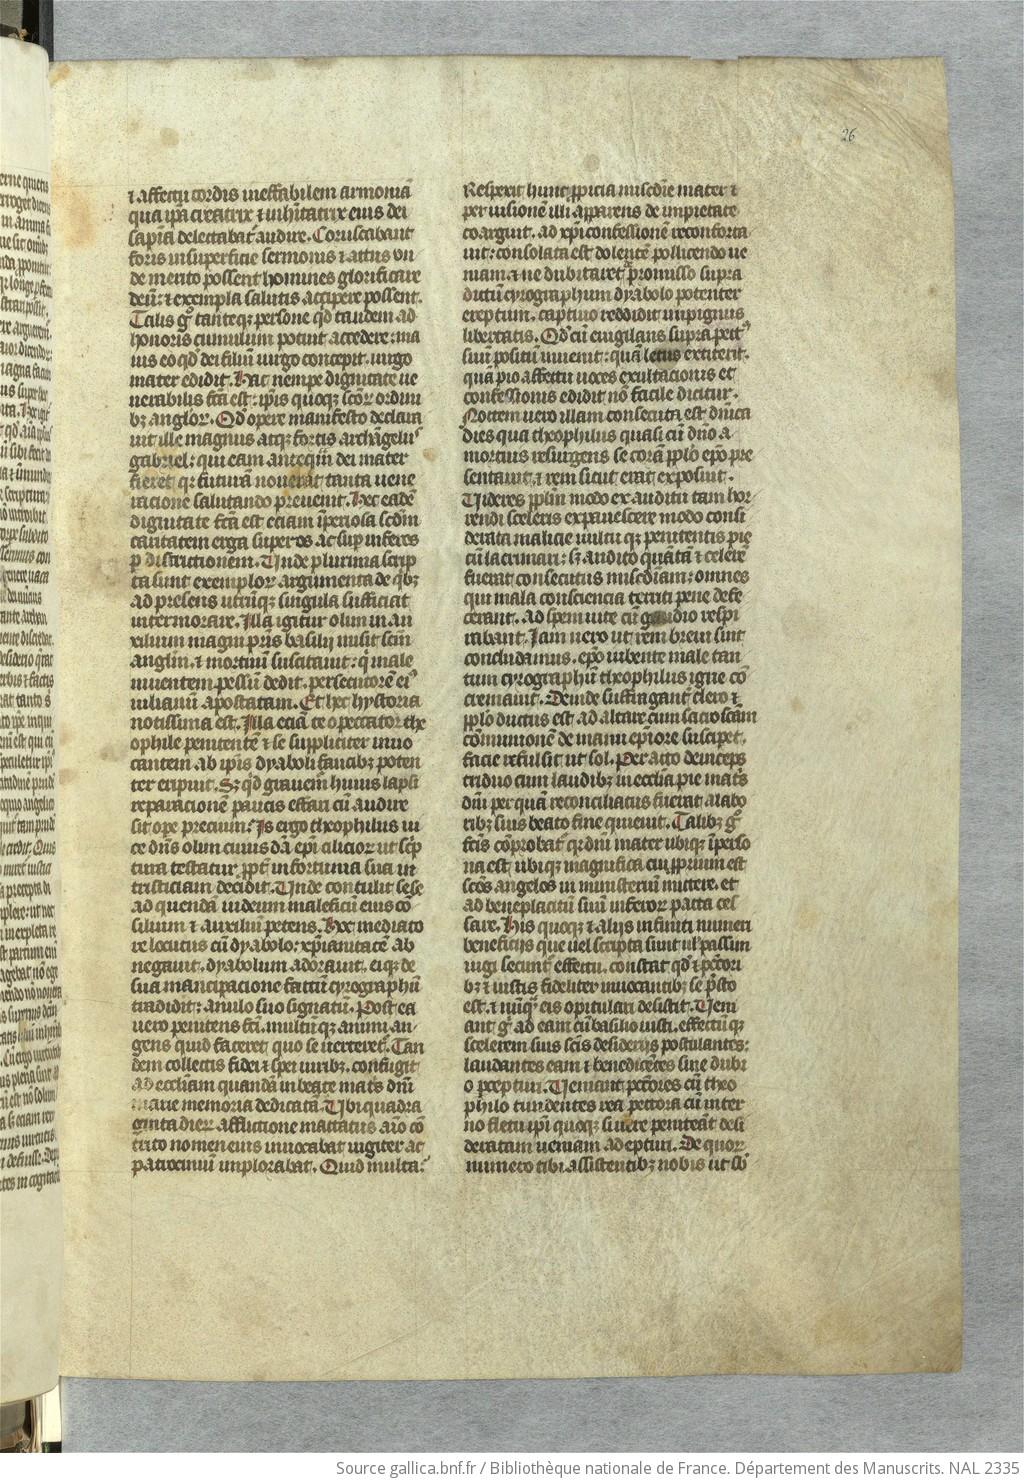 26
⁊ affectu cordis ineffabilem armoniā
qua ip̄a creatrix ⁊ eius dei
sapiā delectabat᷑ audire. Coruscabant
foris in superficie sermonis ⁊ actus vn
de merito possent homines glorificare
deū: ⁊ exempla salutis accipere possent.
Talis gͦ tanteqꝫ persone qd̄ tandem ad
honoris cumulum potuit accedere: ma
ius eo qd̄ dei filiū uirgo concepit. uirgo
mater edidit. Hac nempe dignitate ue
nerabilis fc̄a est: ip̄is quoqꝫ sc̄oꝝ ordini
bꝫ angloꝝ. Qd̄ opere manifesto declara
uit ille magnus atqꝫ fortis archāgelus
gabriel: qui eam anteqͣm dei mater
fieret qꝛ futurā nouerat tanta uene
racione salutando preuenit. Hec eadē
dignitate fc̄a est eciam īperiosa sc̄dm
caritatem erga superos ac sup inferos
ꝑ districtionem. Unde plurima scrip
ta sunt exemploꝝ argumenta de qͥbꝫ
ad presens utrūqꝫ singula sufficiat
intermorare. Illa igitur olim in au
xilium magni pr̄is basilij misit sc̄m
anglm̄. ⁊ mortuū suscitauit: qͥ male
uiuentem pessū dedit. persecutorē eiꝰ
iulianū apostatam. Et hec hystoria
notissima est. Illa eciā te o peccator the
ophile penitentē ⁊ se suppliciter inuo
cantem ab ip̄is dyaboli faucibꝫ poten
ter eripuit. Sꝫ qd̄ grauem huius lapsi
reparacionē paucis effari cū audire
sit ope precium: Is ergo theophilus ui
ce dn̄s olim cuiusdā ep̄i alicior ut sc̄p
tura testatur ꝓpt̄ infortunia sua in
tristiciam decidit. Unde contulit sese
ad quendā iudeum maleficū eius cō
silium ⁊ auxiliū petens. Hec mediato
re locutus cū dyabolo: xp̄ianitatē ab
negauit. dyabolum adorauit. eiqꝫ de
sua mancipacione factū cyrographū
tradidit: anulo suo signatū. Post ea
uero penitens fc̄i. multūqꝫ animi an
gens quid faceret quo se uerteret. Tan
dem collectis fidei ⁊ spei uiribꝫ. confugit
ad eccliam quandā in beate mat̄s dn̄i
marie memoria dedicatā. Ubi quadra
ginta dieꝝ afflictione mactatus aīo cō
trito nomen eius inuocabat iugiter ac
patrociniū implorabat. Quid multa:
Respexit hunc ꝓpicia misc̄die mater ⁊
per uisionē illi apparens de impietate
coarguit. ad xp̄i confessionē reconforta
uit: consolata est dolentē pollicendo ue
niam. ⁊ ne dubitaret promisso supra
dictū cyrographum dyabolo potenter
ereptum. captiuo reddidit in pignus
libertatis. Qd̄ cū euigilans supra pectꝰ
suū positū inuenit: quā letus extiterit.
quā pio affectu uoces exultacionis et
confessionis edidit nō facile dicitur.
Noctem uero illam consecuta est dn̄ica
dies qua theophilus quasi cū dn̄o a
mortuis resurgens se corā ꝓplo ep̄o pre
sentauit. ⁊ rem sicut erat exposuit.
Uideres pplm̄ modo ex auditu tam hor
rendi sceleris expauescere modo consi
derata malicie uultu qꝫ penitentis pie
cū lacrimari: sꝫ audito quātā ⁊ celerē
fuerat consecutus misc̄diam: omnes
qui mala consciencia territi pene defe
cerant. ad spem uite cū gaudio respi
rabant. Iam uero ut rem breui sint
concludamus. ep̄o iubente male tan
tum cyrographū theophilus igne cō
cremauit. Deinde suffragant̄ clero ⁊
pplo ductus est ad altare cum sacrosc̄am
cōmunionē de manu ep̄i ore suscip̄et.
facie refulsit ut sol. Peracto deinceps
triduo cum laudibꝫ in ecclia pie mat̄s
dn̄i per quā reconciliatus fuerat a labo
ribꝫ suis beato fine quieuit. Talibꝫ gͦ
fc̄is cōprobat᷑ qꝛ dn̄i mater ubiqꝫ īperio
sa est ubiqꝫ magnifica cui ꝓprium est
sc̄os angelos in ministeriū mittere. et
ad beneplacitū suū inferoꝝ pacta ces
sare. His quoqꝫ ⁊ alijs infiniti numeri
beneficijs que uel scripta sunt ul̓ passim
iugi secunt᷑ effectu. constat qd̄ ⁊ pc̄cori
bꝫ ⁊ iustis fideliter inuocantibꝫ se p̄sto
est. ⁊ nūqͣ eis opitulari desistit. Ueni
ant gͦ ad eam cū basilio iusti. effectūqꝫ
scelerem suis sc̄is desiderijs postulantes:
laudantes eam ⁊ benedicētes sine dubi
o ꝑcepturi. Ueniant pc̄cores cū theo
philo tundentes rea pectora cū inter
no fletu ip̄i quoqꝫ si uere peniteāt desi
deratam ueniam adepturi. De quoꝝ
numero tibi assistentibꝫ nobis ut sb̓
Source gallica.bnf.fr / Bibliothèque nationale de France. Département des Manuscrits. NAL 2335